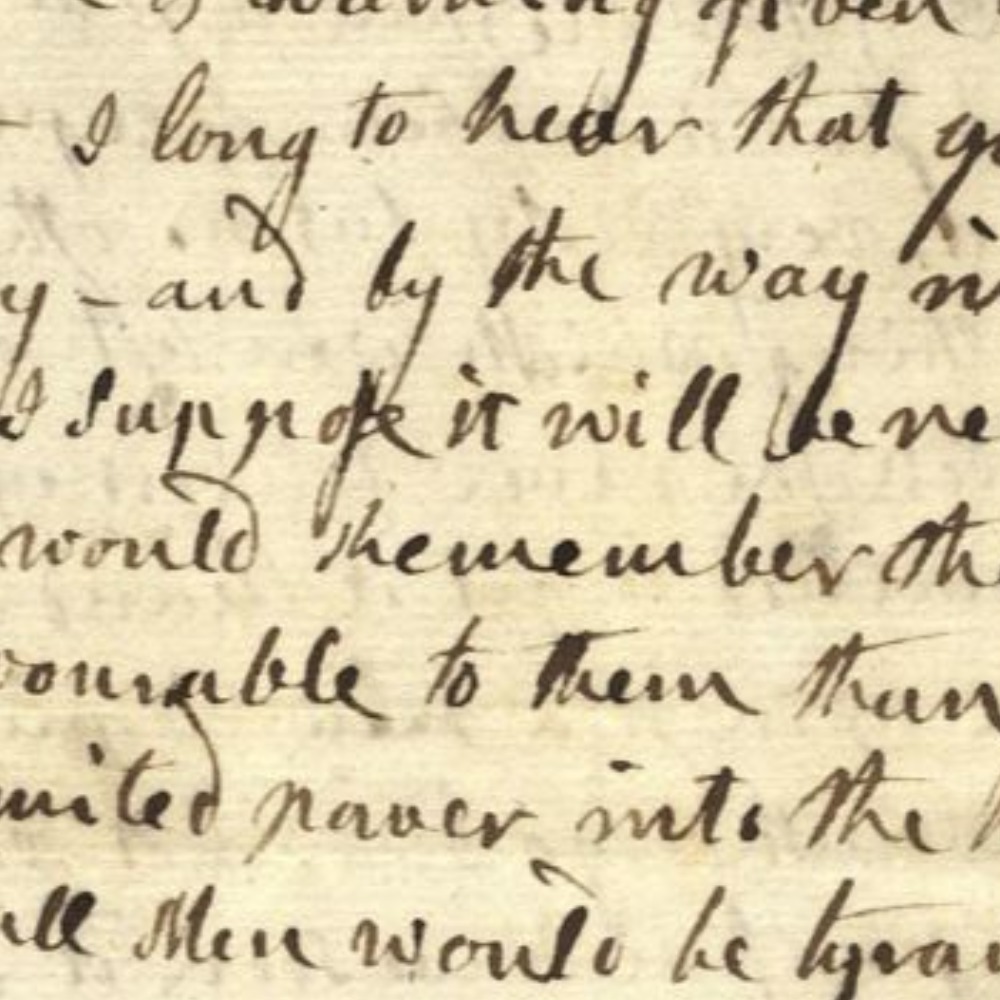 I long to hear that
y - and by the way in
I suppose it will be ne
would Remember th
vourable to them than
mited power into the
all Men would be tyran